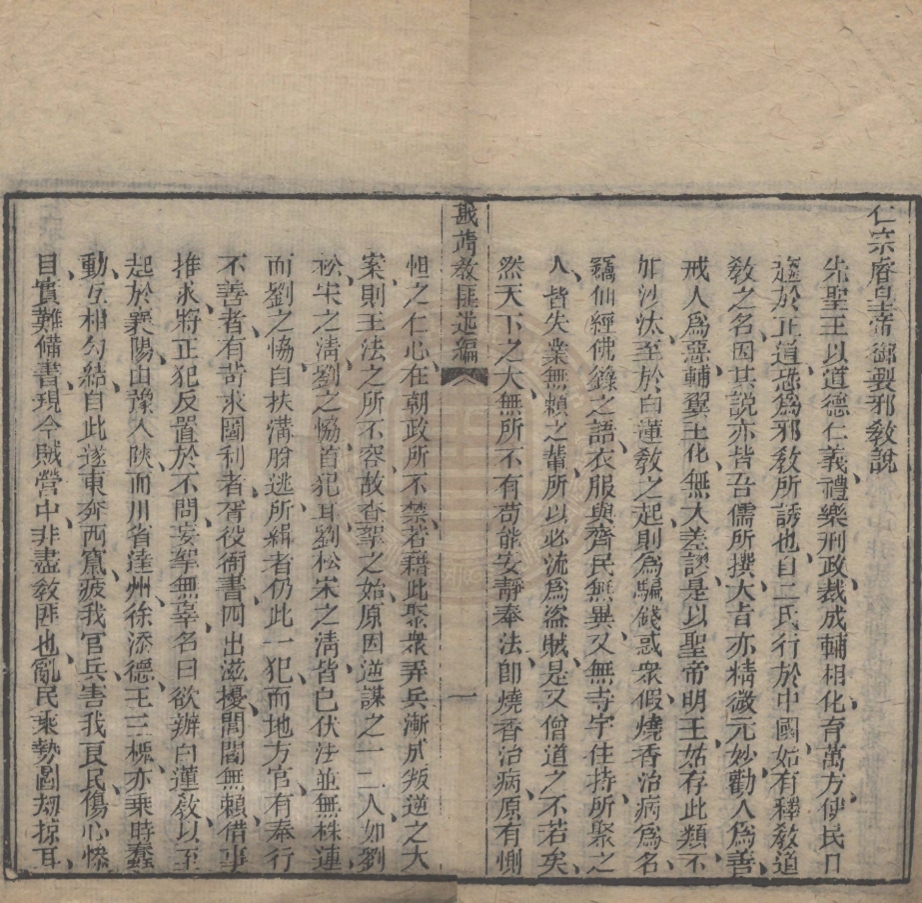 仁宗睿皇帝御製邪敎說
先聖王以道德仁義禮樂刑政裁成輔相化育萬方俾民日
遵於正道恐爲邪敎所誘也自二氏行於中國始有釋敎道
敎之名因其說亦皆吾儒所撰大旨亦精微元妙勸人爲善
戒人爲惡輔翼王化無大差謬是以聖帝明王姑存此類不
加沙汰至於白蓮敎之起則爲騙錢惑衆假燒香治病爲名
竊仙經佛籙之語衣服與齊民無異又無寺宇住持所聚之
人皆失業無賴之輩所以必流爲盜賊是又僧道之不若矣
然天下之大無所不有苟能安靜奉法卽燒香治病原有惻
戡靖敎匪述編 一
怛之仁心在朝政所不禁若藉此聚衆弄兵漸成叛逆之大
案則王法之所不容故查拏之始原因逆謀之一二人如劉
松宋之淸劉之協首犯耳劉松宋之淸皆已伏法並無株連
而劉之協自扶溝脫逃所緝者仍此一犯而地方官有奉行
不善者有苛求圖利者胥役衙書四出滋擾閭閻無賴借事
推求將正犯反置於不問妄拏無辜名曰欲辦白蓮敎以至
起於襄陽由豫入陝而川省達州徐添德王三槐亦乘時蠢
動互相勾結自此遂東奔西竄疲我官兵害我良民傷心慘
目實難備書現今賊營中非盡敎匪也亂民乘勢圖刼掠耳